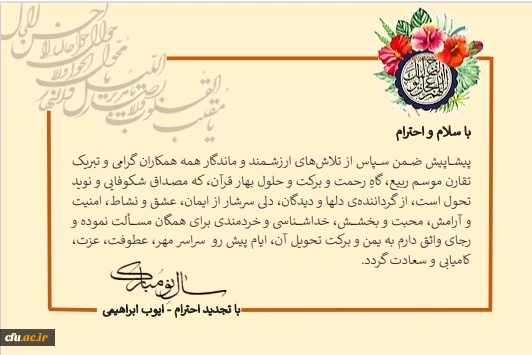 یا مقلب القلوب و الابصار
با سلام و احترام
پیشاپیش ضمن سپاس از تلاش‌های ارزشمند و ماندگار همه همکاران گرامی و تبریک
تقارن موسم ربیع، گاهِ رحمت و برکت و حلول بهار قرآن، که مصداق شکوفایی و نوید
تحول است، از گرداننده‌ی دلها و دیدگان، دلی سرشار از ایمان، عشق و نشاط، امنیت
و آرامش، محبت و بخشش، خداشناسی و خردمندی برای همگان مسألت نموده و
رجای واثق دارم به یمن و برکت تحویل آن، ایام پیش رو سراسر مهر، عطوفت، عزت،
کامیابی و سعادت گردد.
سال نو مبارک
با تجدید احترام - ایوب ابراهیمی
cfu.ac.ir